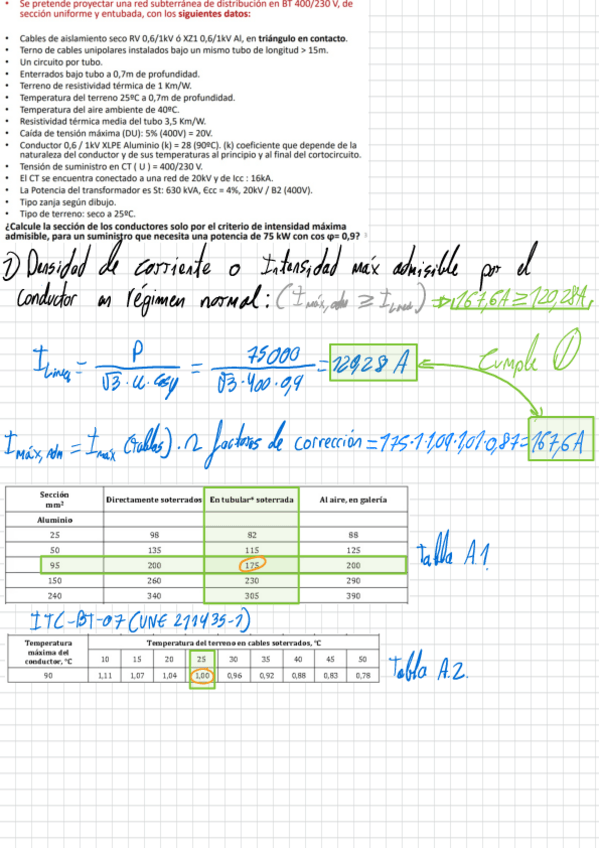 • Se pretende proyectar una red subterránea de distribución en BT 400/230 V, de
sección uniforme y entubada, con los siguientes datos:
• Cables de aislamiento seco RV 0,6/1kV ó XZ1 0,6/1kV Al, en triángulo en contacto.
• Terno de cables unipolares instalados bajo un mismo tubo de longitud > 15m.
• Un circuito por tubo.
• Enterrados bajo tubo a 0,7m de profundidad.
• Terreno de resistividad térmica de 1 Km/W.
• Temperatura del terreno 25ºC a 0,7m de profundidad.
• Temperatura del aire ambiente de 40ºC.
• Resistividad térmica media del tubo 3,5 Km/W.
• Caída de tensión máxima (DU): 5% (400V) = 20V.
• Conductor 0,6 / 1kV XLPE Aluminio (k) = 28 (90ºC). (k) coeficiente que depende de la
naturaleza del conductor y de sus temperaturas al principio y al final del cortocircuito.
• Tensión de suministro en CT ( U ) = 400/230 V.
• El CT se encuentra conectado a una red de 20kV y de Icc : 16kA.
• La Potencia del transformador es St: 630 kVA, Ɛcc = 4%, 20kV / B2 (400V).
• Tipo zanja según dibujo.
• Tipo de terreno: seco a 25ºC.
¿Calcule la sección de los conductores solo por el criterio de intensidad máxima
admisible, para un suministro que necesita una potencia de 75 kW con cos φ= 0,9?
1) Densidad de corriente o Intensidad máx admisible por el
conductor en régimen normal: (I máx, adm ≥ I Línea) ⇒ 167,6A ≥ 120,28A,
I Línea = P / √3 · U · cosφ = 75000 / √3 · 400 · 0,9 = 120,28 A Cumple ①
I máx, Adm = I max (tablas) · n factores de corrección = 175·1·1,09·1,01·0,87 = 167,6A
Sección mm² Directamente soterrados En tubular* soterrada Al aire, en galería
Aluminio
25 98 82 88
50 135 115 125
95 200 175 200
150 260 230 290
240 340 305 390
tabla A.1
ITC-BT-07 (UNE 211435-1)
Temperatura máxima del conductor, °C Temperatura del terreno en cables soterrados, °C
10 15 20 25 30 35 40 45 50
90 1,11 1,07 1,04 1,00 0,96 0,92 0,88 0,83 0,78
tabla A.2.